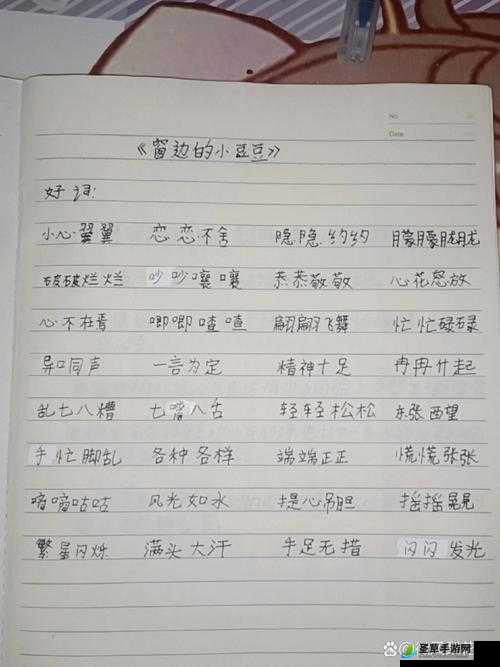 No
Date
《窗边的小豆豆》
好词:
小心翼翼 恋恋不舍 隐隐约约 朦朦胧胧
破破烂烂 吵吵嚷嚷 恭恭敬敬 心花怒放
心不在焉 唧唧喳喳 翩翩飞舞 忙忙碌碌
异口同声 一言为定 精神十足 冉冉升起
乱七八糟 七嘴八舌 轻轻松松 东张西望
手忙脚乱 各种各样 端端正正 慌慌张张
嘀嘀咕咕 风光如水 提心吊胆 摇摇晃晃
繁星闪烁 满头大汗 手足无措 闪闪发光
圣草手游网